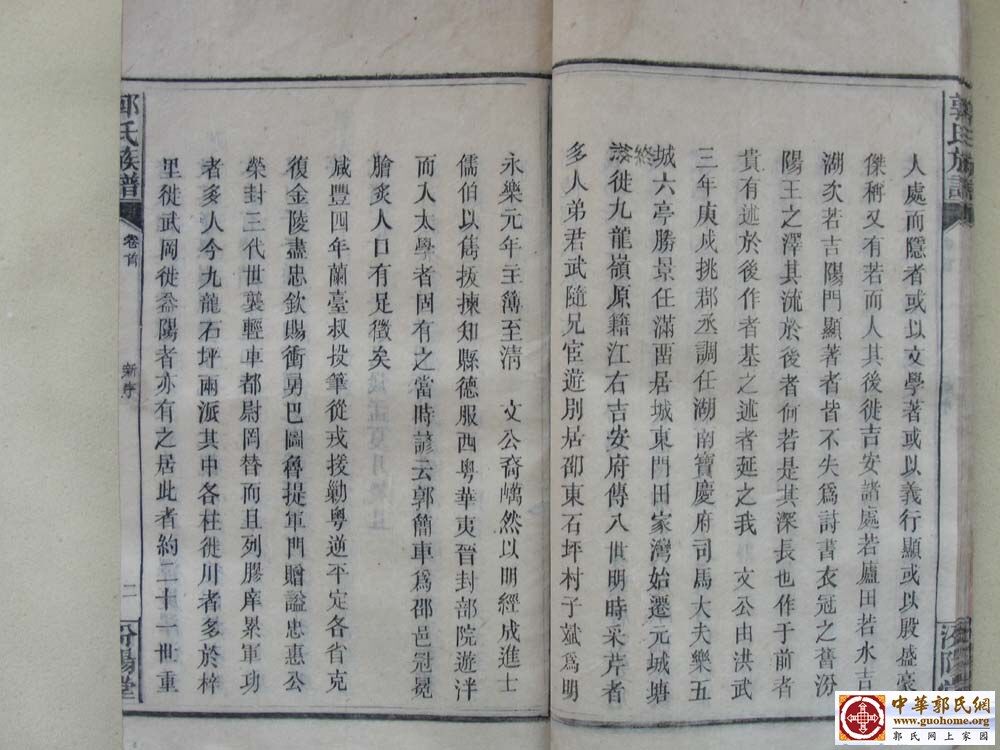 郭氏族譜
人處而隱者或以文學著或以義行顯或以殷盛豪
傑稱又有若而人其後徙吉安諸處若廬田若水吉
湖次若吉陽門顯著者皆不失爲詩書衣冠之舊汾
陽王之澤其流於後者何若是其深長也作于前者
貴有述於後作者基之述者延之我 文公由洪武
三年庚戌挑郡丞調任湖南寶慶府司馬大夫樂五
城六亭勝景任滿西居城東門田家灣始遷元城塘
終徙九龍嶺原籍江右吉安府傳八世明時采芹者
多人弟君武隨兄宦遊別居邵東石坪村子斌爲明
永樂元年主簿至清 文公裔巍然以明經成進士
儒伯以雋拔揀知縣德服西粵華夷晉封部院遊泮
而入太學者固有之當時諺云郭簡車爲邵邑冠冕
膾炙人口有足徵矣
咸豐四年蘭臺叔投筆從戎援勦粵逆平定各省克
復金陵盡忠欽賜衝勇巴圖魯提軍門贈諡忠惠公
榮封三代世襲輕車都尉罔替而且列膠庠累軍功
者多人今九龍石坪兩派其中各柱徙川者多於梓
里徙武岡徙益陽者亦有之居此者約二十一世重
郭氏族譜
卷首
新序
二
汾陽堂
中華郭氏網
www.guohome.org
郭氏網上家園